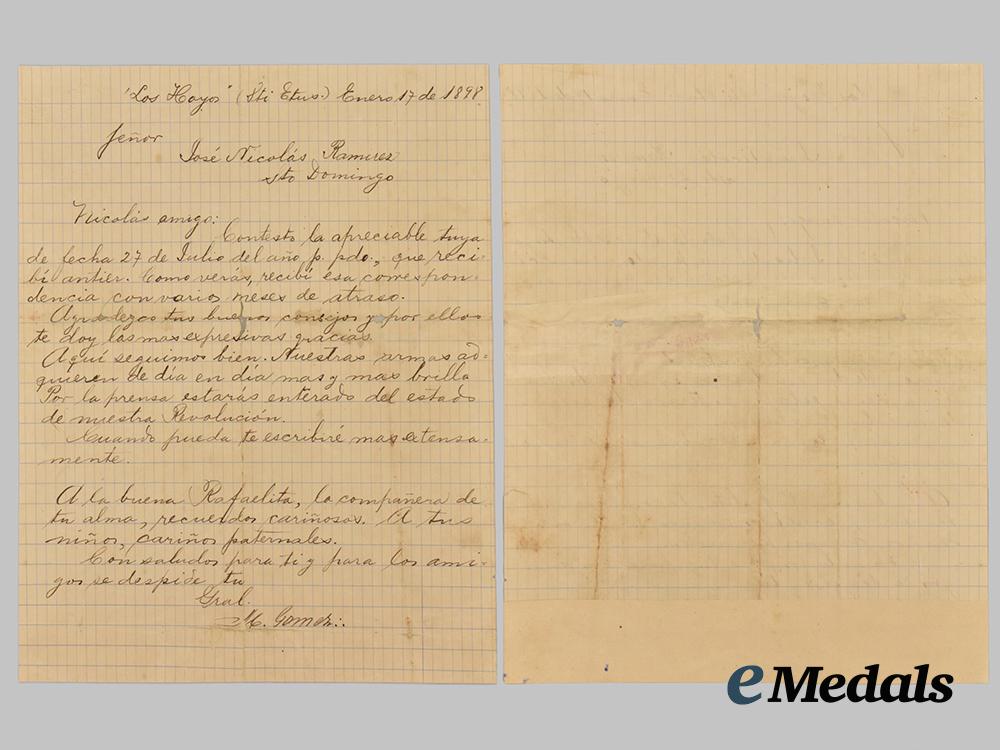 "Los Hoyos" (Sti Etus.) Enero 17 de 1898
Señor
José Nicolás Ramirez
Sto Domingo
Nicolás amigo:
Contesto la apreciable tuya
de fecha 27 de Julio del año p. pdo., que reci-
bí antier. Como verás, recibí esa correspon-
dencia con varios meses de atraso.
Agradezco tus buenos consejos y por ellos
te doy las mas expresivas gracias.
Aquí seguimos bien. Nuestras armas ad-
quieren de día en día mas y mas brillo
Por la prensa estarás enterado del estado
de nuestra Revolución.
Cuando pueda te escribiré mas extensa-
mente.
A la buena Rafaelita, la compañera de
tu alma, recuerdos cariñosos. A tus
niños, cariños paternales.
Con saludos para ti y para los ami-
gos se despide tu
Gral.
M. Gomez.
eMedals